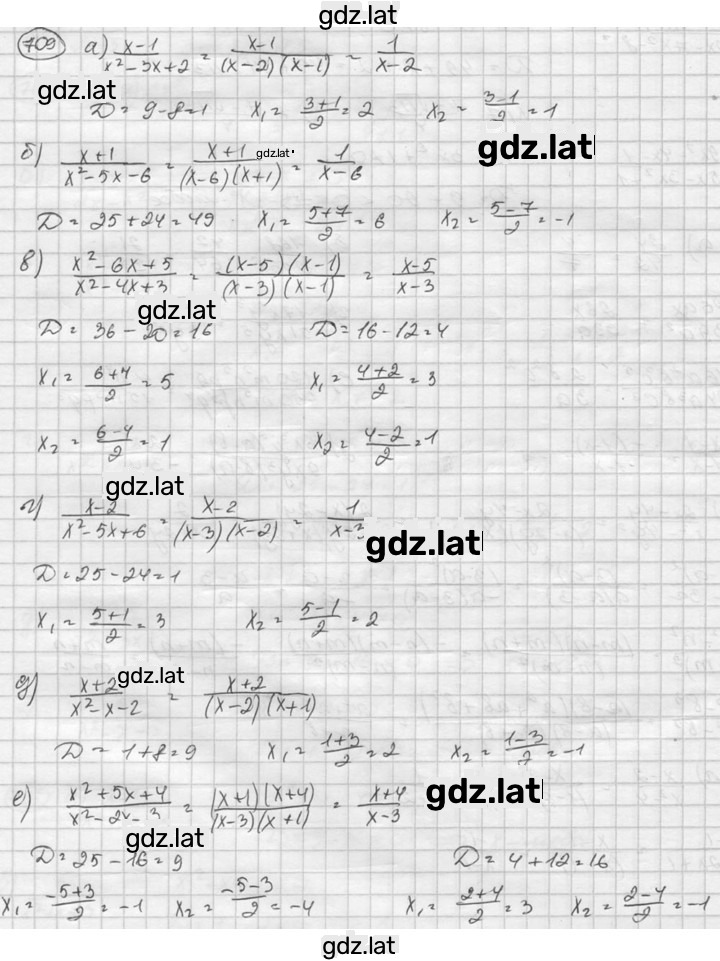 gdz.lat
709 а) (x-1)/(x²-3x+2) = (x-1)/((x-2)(x-1)) = 1/(x-2)
gdz.lat
D = 9-8=1 x₁ = (3+1)/2 = 2 x₂ = (3-1)/2 = 1
gdz.lat
б) (x+1)/(x²-5x-6) = (x+1)/((x-6)(x+1)) = 1/(x-6)
gdz.lat
D = 25+24=49 x₁ = (5+7)/2 = 6 x₂ = (5-7)/2 = -1
в) (x²-6x+5)/(x²-4x+3) = ((x-5)(x-1))/((x-3)(x-1)) = (x-5)/(x-3)
gdz.lat
D = 36-20=16 D=16-12=4
x₁ = (6+4)/2 = 5 x₁ = (4+2)/2 = 3
x₂ = (6-4)/2 = 1 x₂ = (4-2)/2 = 1
gdz.lat
г) (x-2)/(x²-5x+6) = (x-2)/((x-3)(x-2)) = 1/(x-3)
gdz.lat
D=25-24=1
x₁ = (5+1)/2 = 3 x₂ = (5-1)/2 = 2
gdz.lat
д) (x+2)/(x²-x-2) = (x+2)/((x-2)(x+1))
D = 1+8=9 x₁ = (1+3)/2 = 2 x₂ = (1-3)/2 = -1
е) (x²+5x+4)/(x²-2x-3) = ((x+1)(x+4))/((x-3)(x+1)) = (x+4)/(x-3)
gdz.lat
gdz.lat
D=25-16=9 D=4+12=16
x₁ = (-5+3)/2 = -1 x₂ = (-5-3)/2 = -4 x₁ = (2+4)/2 = 3 x₂ = (2-4)/2 = -1
gdz.lat